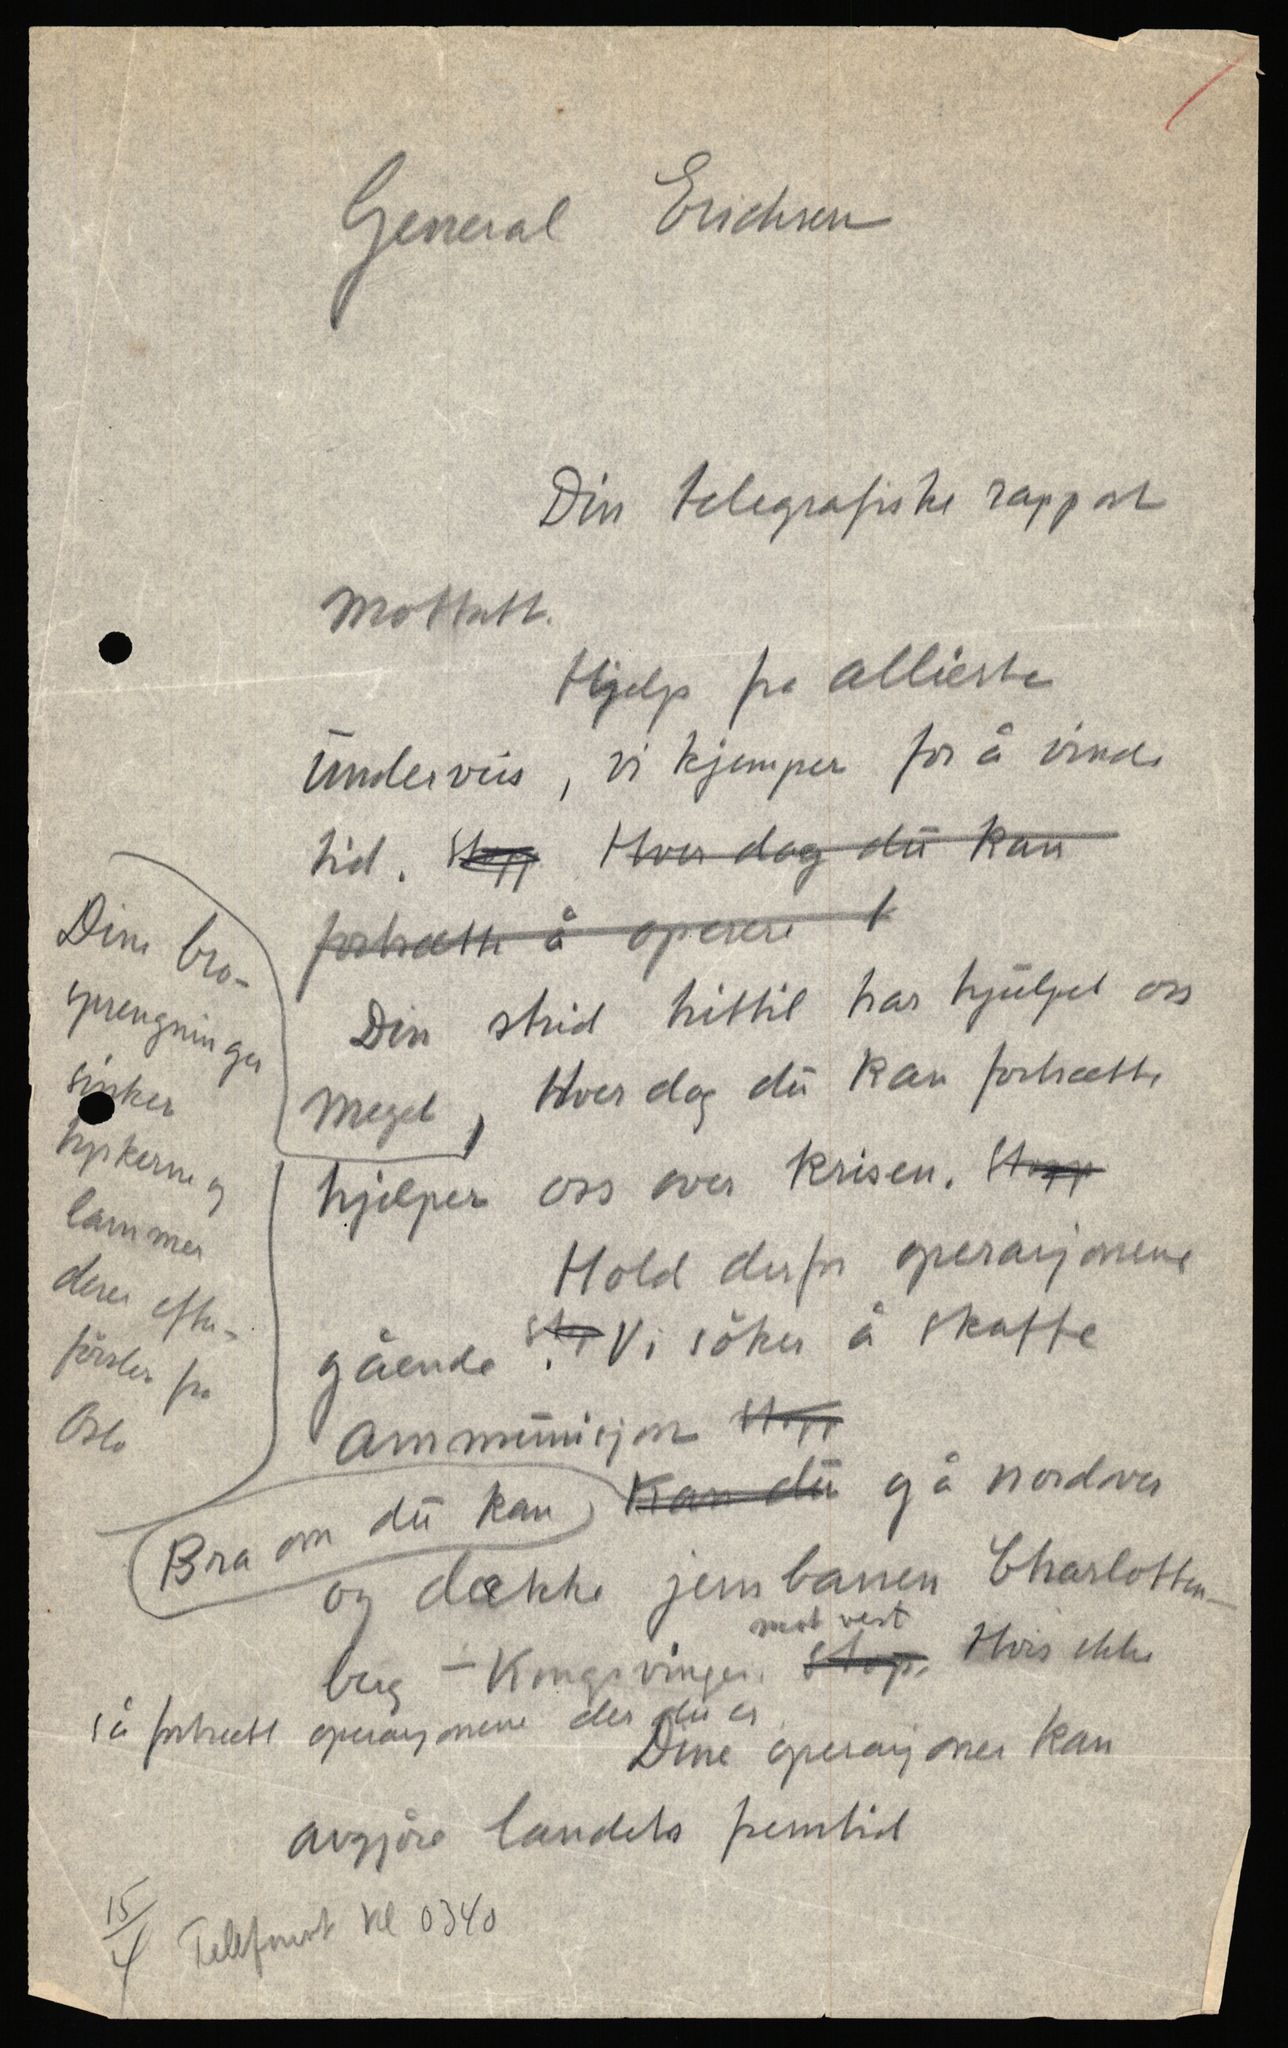 General Erichsen
Din telegrafiske rapport
Mottatt.
Hjelp fra allierte
underveis, vi kjemper for å vinde
tid. Stopp Hver dag du kan
fortsætte å operere
Din strid hittil har hjulpet oss
meget, Hver dag du kan fortsætte
Dine bro-
sprengninger
sinker
tyskerne og
lammer
deres efter-
førsler fra
Oslo
hjelper oss over krisen. Stopp
Hold derfor operasjonene
gående. Stop Vi søker å skaffe
ammunisjon Stopp
Bra om du kan Kan du gå nordover
og dække jernbanen Charlotten-
berg - Kongsvinger mot vest. Stop. Hvis ikke
så fortsett operasjonene der du er
Dine operasjoner kan
avgjøre landets fremtid
15/4 Telefonert kl 0340